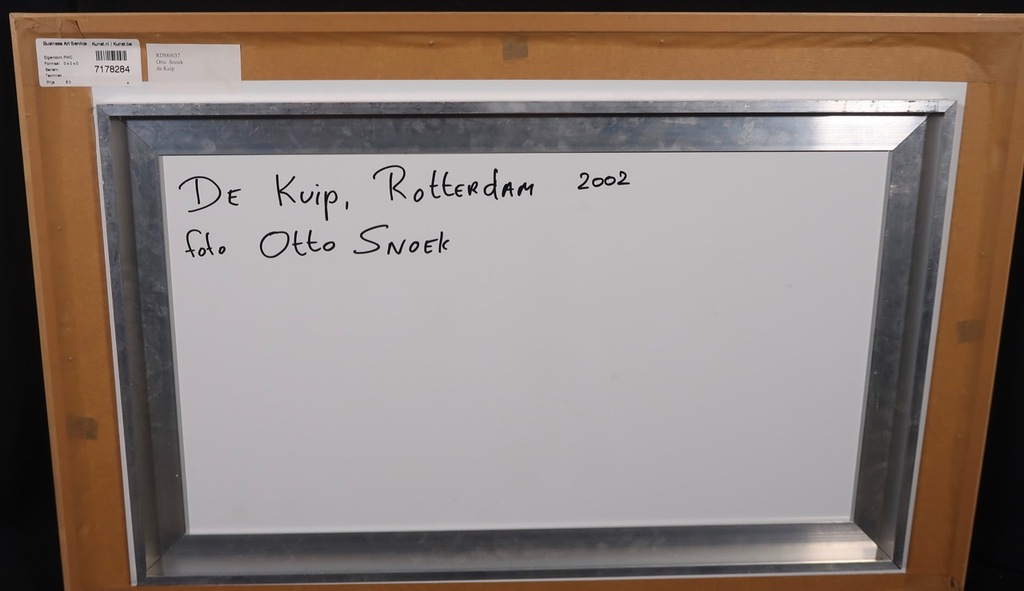 Business Art Service Kunst.nl / Kunst.be
Eigendom: PWC
Formaat: 0 x 0 x 0
Techniek:
Prijs
7178284
Otto Snoek
de Kuip
De Kuip, Rotterdam 2002
foto Otto Snoek